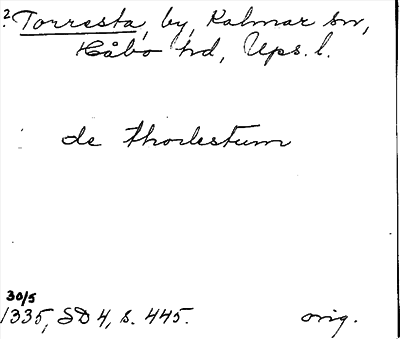 ? Torresta, by, Kalmar sn,
Håbo hd, Ups. l.
de thorlestum
30/5
1335, SD 4, s. 445. orig.